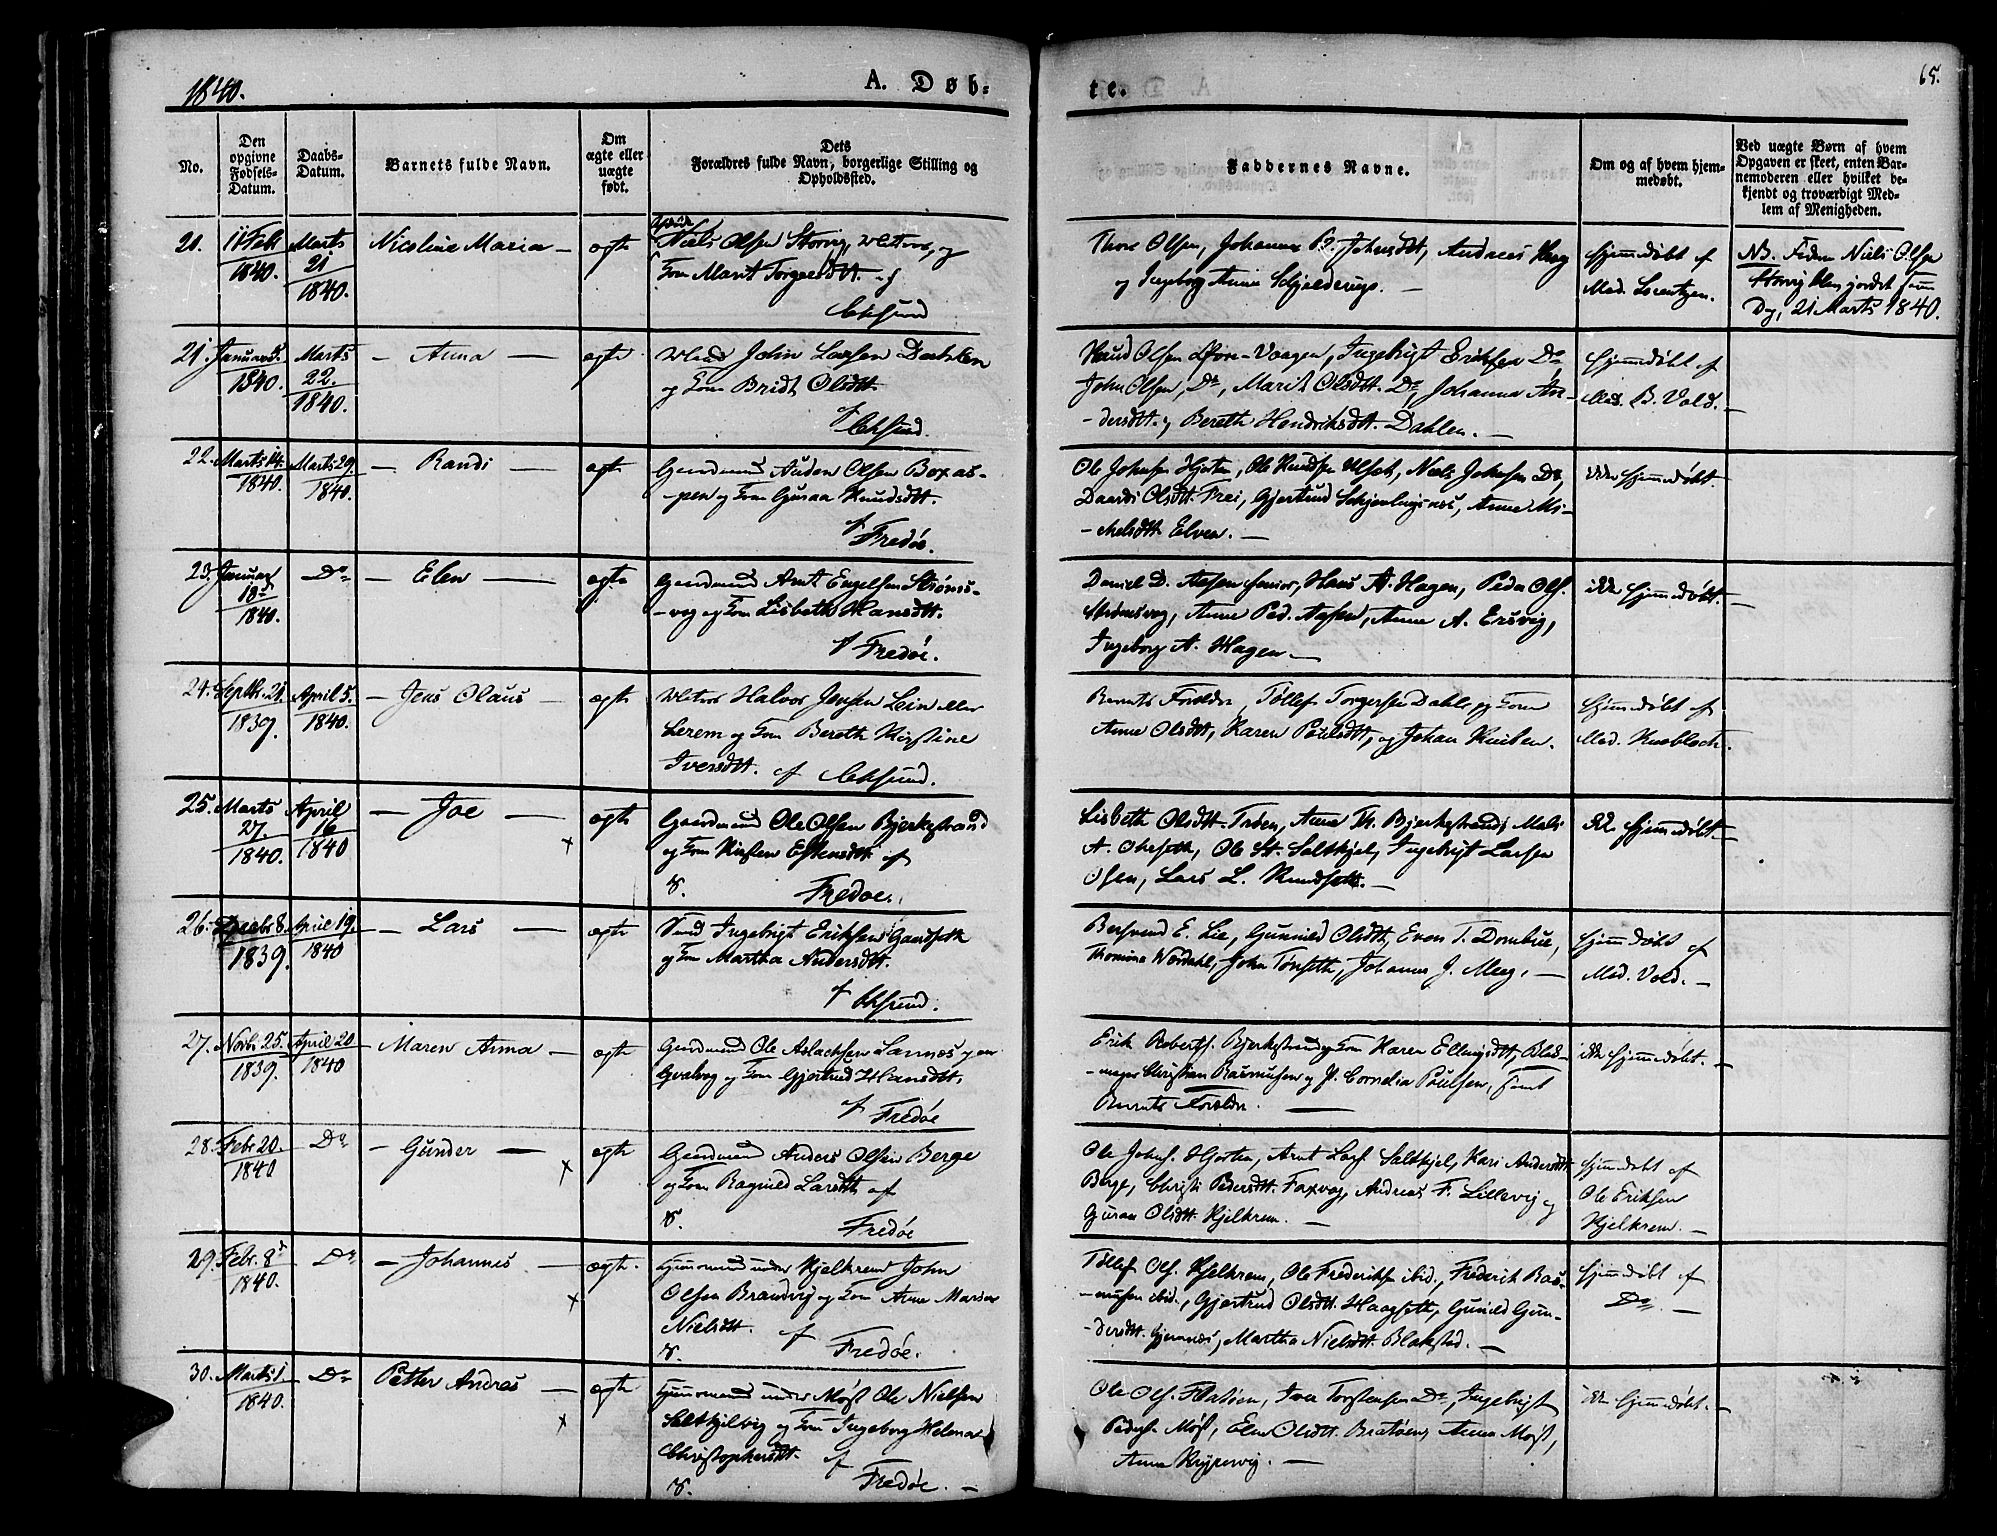 1840.
A. Døb-
te.
65.
No.
Den
opgivne
Fødsels-
Datum.
Daabs-
Datum.
Barnets fulde Navn.
Om
ægte eller
uægte
født.
Dets
Forældres fulde Navn, borgerlige Stilling og
Opholdssted.
Faddernes Navne.
Om og af hvem hjem-
medøbt.
Ved uægte Børn af hvem
Opgaven er skeet, enten Bar-
nemoderen eller hvilket be-
kjendt og troværdigt Med-
lem af Menigheden.
20.
Febr
1840.
Marts
21
1840.
Nicoline Maria
ægte
Niels Olsen Storvig
og
Kone Marit Torgersdtt.
Thore Olsen, Johanna
og Ingeborg Anna Schjelderups.
hjemmedøbt af
Mad. Lorentzen.
NB. Faderen Niels Olsen
Storvig
Dag, 21 Marts 1840.
21.
Januar 5.
1840.
Marts
22.
1840.
Anna
ægte
John Larsen
og Kone Bridt Olsdtt.
Knud Olsen Øvre-Vaagen, Ingebrigt Eriksen Do
John Olsen, Do, Marit Olsdtt. Do, Johanna An-
dersdtt. og Bereth Hendriksdtt. Dahlen.
hjemmedøbt af
Mad. B. Vold.
22.
Marts 14.
1840.
Marts 29.
1840.
Randi
ægte
Gaardmand Auden Olsen Boxas-
pen og Kone Guraa Knudsdtt.
af
Fredøe.
Ole Johnsen Hjorten, Ole Knudsen Ulset, Niels Johnsen Do,
Daardi Olsdtt. Frei, Gjertrud Schjerlingsnes, Anne Mi-
chelsdtt. Elven.
ikke hjemmedøbt.
23.
Januar
18de
1840.
Do
Elen
ægte
Gaardmand Arnt Engelsen Strøms-
vog og Kone Lisbeth Hansdtt.
af Fredøe.
Daniel D. Aasen senior, Hans A. Hagen, Peder Ols.
Strømsvog, Anne Ped. Aasen, Anne A. Ersvig,
Ingeborg A. Hagen.
ikke hjemmedøbt.
24.
Septbr. 21.
1839.
April 5.
1840.
Jens Olaus
ægte
Halvor Jensen Lein eller
Lerem og Kone Bereth Kirstine
Iversdtt. af
Barnets Forældre, Tøllef Torgersen Dahle og Kone
Anne Olsdtt, Karen Poulsdtt, og Johan Knutzen.
hjemmedøbt af
Mad. Knobloch.
25.
Marts
27.
1840.
April
16
1840
Joe
ægte
Gaardmand Ole Olsen Bjerkestrand
og Kone Kirsten Estensdtt. af
Fredøe.
Lisbeth Olsdtt. Trøen, Anne Th. Bjerkestrand, Mali
A. Ohrseth, Ole St. Saltkjel, Ingebrigt Larsen
Osen, Lars L. Knudseth.
ikke hjemmedøbt.
26.
Decebr 8.
1839.
April 19.
1840
Lars
ægte
Ingebrigt Eriksen Gaardseth
og Kone Martha Andersdtt.
Bersvend E. Lie, Gunnild Olsdtt, Even T. Dombue,
Thomina Wørdahl, John Tønseth, Johannes J. Meeg.
hjemmedøbt af
Mad. Vold.
27.
Novbr 25.
1839.
April 20
1840
Maren Anna
ægte
Gaardmand Ole Aslachsen
og Kone Gjertrud Hansdtt.
af Fredøe
Erik Roberts. Bjerkestrand og Kone Karen Ellingsdtt, Blad-
Christian Rasmussen og J. Cornelia Poulsen, samt
Barnets Forældre.
ikke hjemmedøbt.
28.
Febr 20.
1840
Do
Gunder
ægte
Gaardmand Anders Olsen Berge
og Kone Ragnild Larsdtt. af
Fredøe
Ole Johns. Hjorten, Arnt Lars. Saltkjel, Kari Andersdtt.
Berge, Christi Pedersdtt. Foxvog, Andreas F. Lillevig og
Guraa Olsdtt. Kjelkrem.
hjemmedøbt af
Ole Eriksen
Kjelkrem.
29.
Febr. 8d
1840.
Do
Johannes
ægte.
Huusmand under Kjelkrem John
Olsen Brandvig og Kone Anne Maria
Nielsdtt. af
Fredøe.
Tøllef Ols. Kjelkrem, Ole Frederiks. ibid., Frederik Ras-
mussen ibid., Gjertrud Olsdtt. Haagseth, Gunild Gun-
dersdtt. Gjemnes, Martha Nielsdtt. Blakstad.
hjemmedøbt af
Do
30.
Marts 1.
1840.
Do
Petter Andreas
ægte
Huusmand under Møst Ole Nielsen
Saltkjelvig og Kone Ingeborg Helena
Christophersdtt. af
Fredøe.
Ole Ols. Flatøen, Iver Torstensen Do, Ingebrigt
Peders. Møst, Elen Olsdtt. Bratøen, Anne Møst,
Anne Kryssvig.
ikke hjemmedøbt.